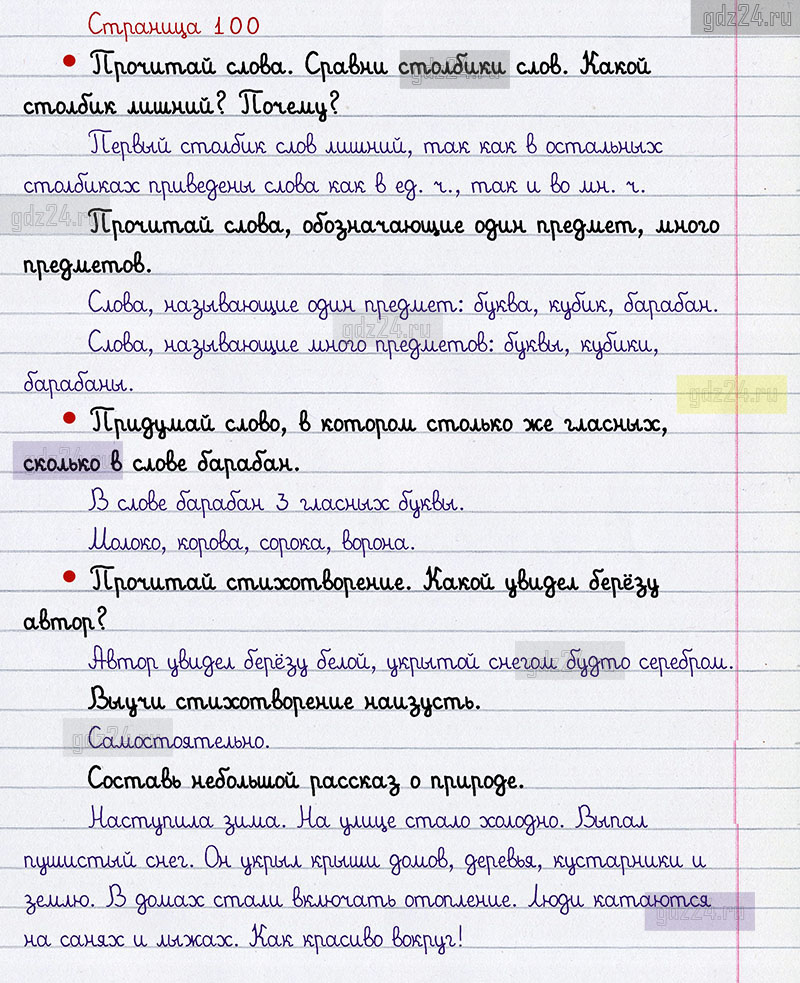 gdz24.ru
Страница 100
• Прочитай слова. Сравни столбики слов. Какой
столбик лишний? Почему?
Первый столбик слов лишний, так как в остальных
столбиках приведены слова как в ед. ч., так и во мн. ч.
gdz24.ru
Прочитай слова, обозначающие один предмет, много
предметов.
Слова, называющие один предмет: буква, кубик, барабан.
gdz24.ru
Слова, называющие много предметов: буквы, кубики,
барабаны.
gdz24.ru
• Придумай слово, в котором столько же гласных,
сколько в слове барабан.
В слове барабан 3 гласных буквы.
Молоко, корова, сорока, ворона.
• Прочитай стихотворение. Какой увидел берёзу
автор?
Автор увидел берёзу белой, укрытой снегом будто серебром.
Выучи стихотворение наизусть.
gdz24.ru
Самостоятельно.
Составь небольшой рассказ о природе.
Наступила зима. На улице стало холодно. Выпал
пушистый снег. Он укрыл крыши домов, деревья, кустарники и
землю. В домах стали включать отопление. Люди катаются
gdz24.ru
на санях и лыжах. Как красиво вокруг!